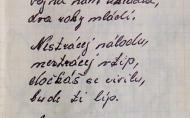 nám
dva roky mládí.
Neztrácej náladu,
neztrácej vtip,
dočkáš se civilu,
bude ti líp.